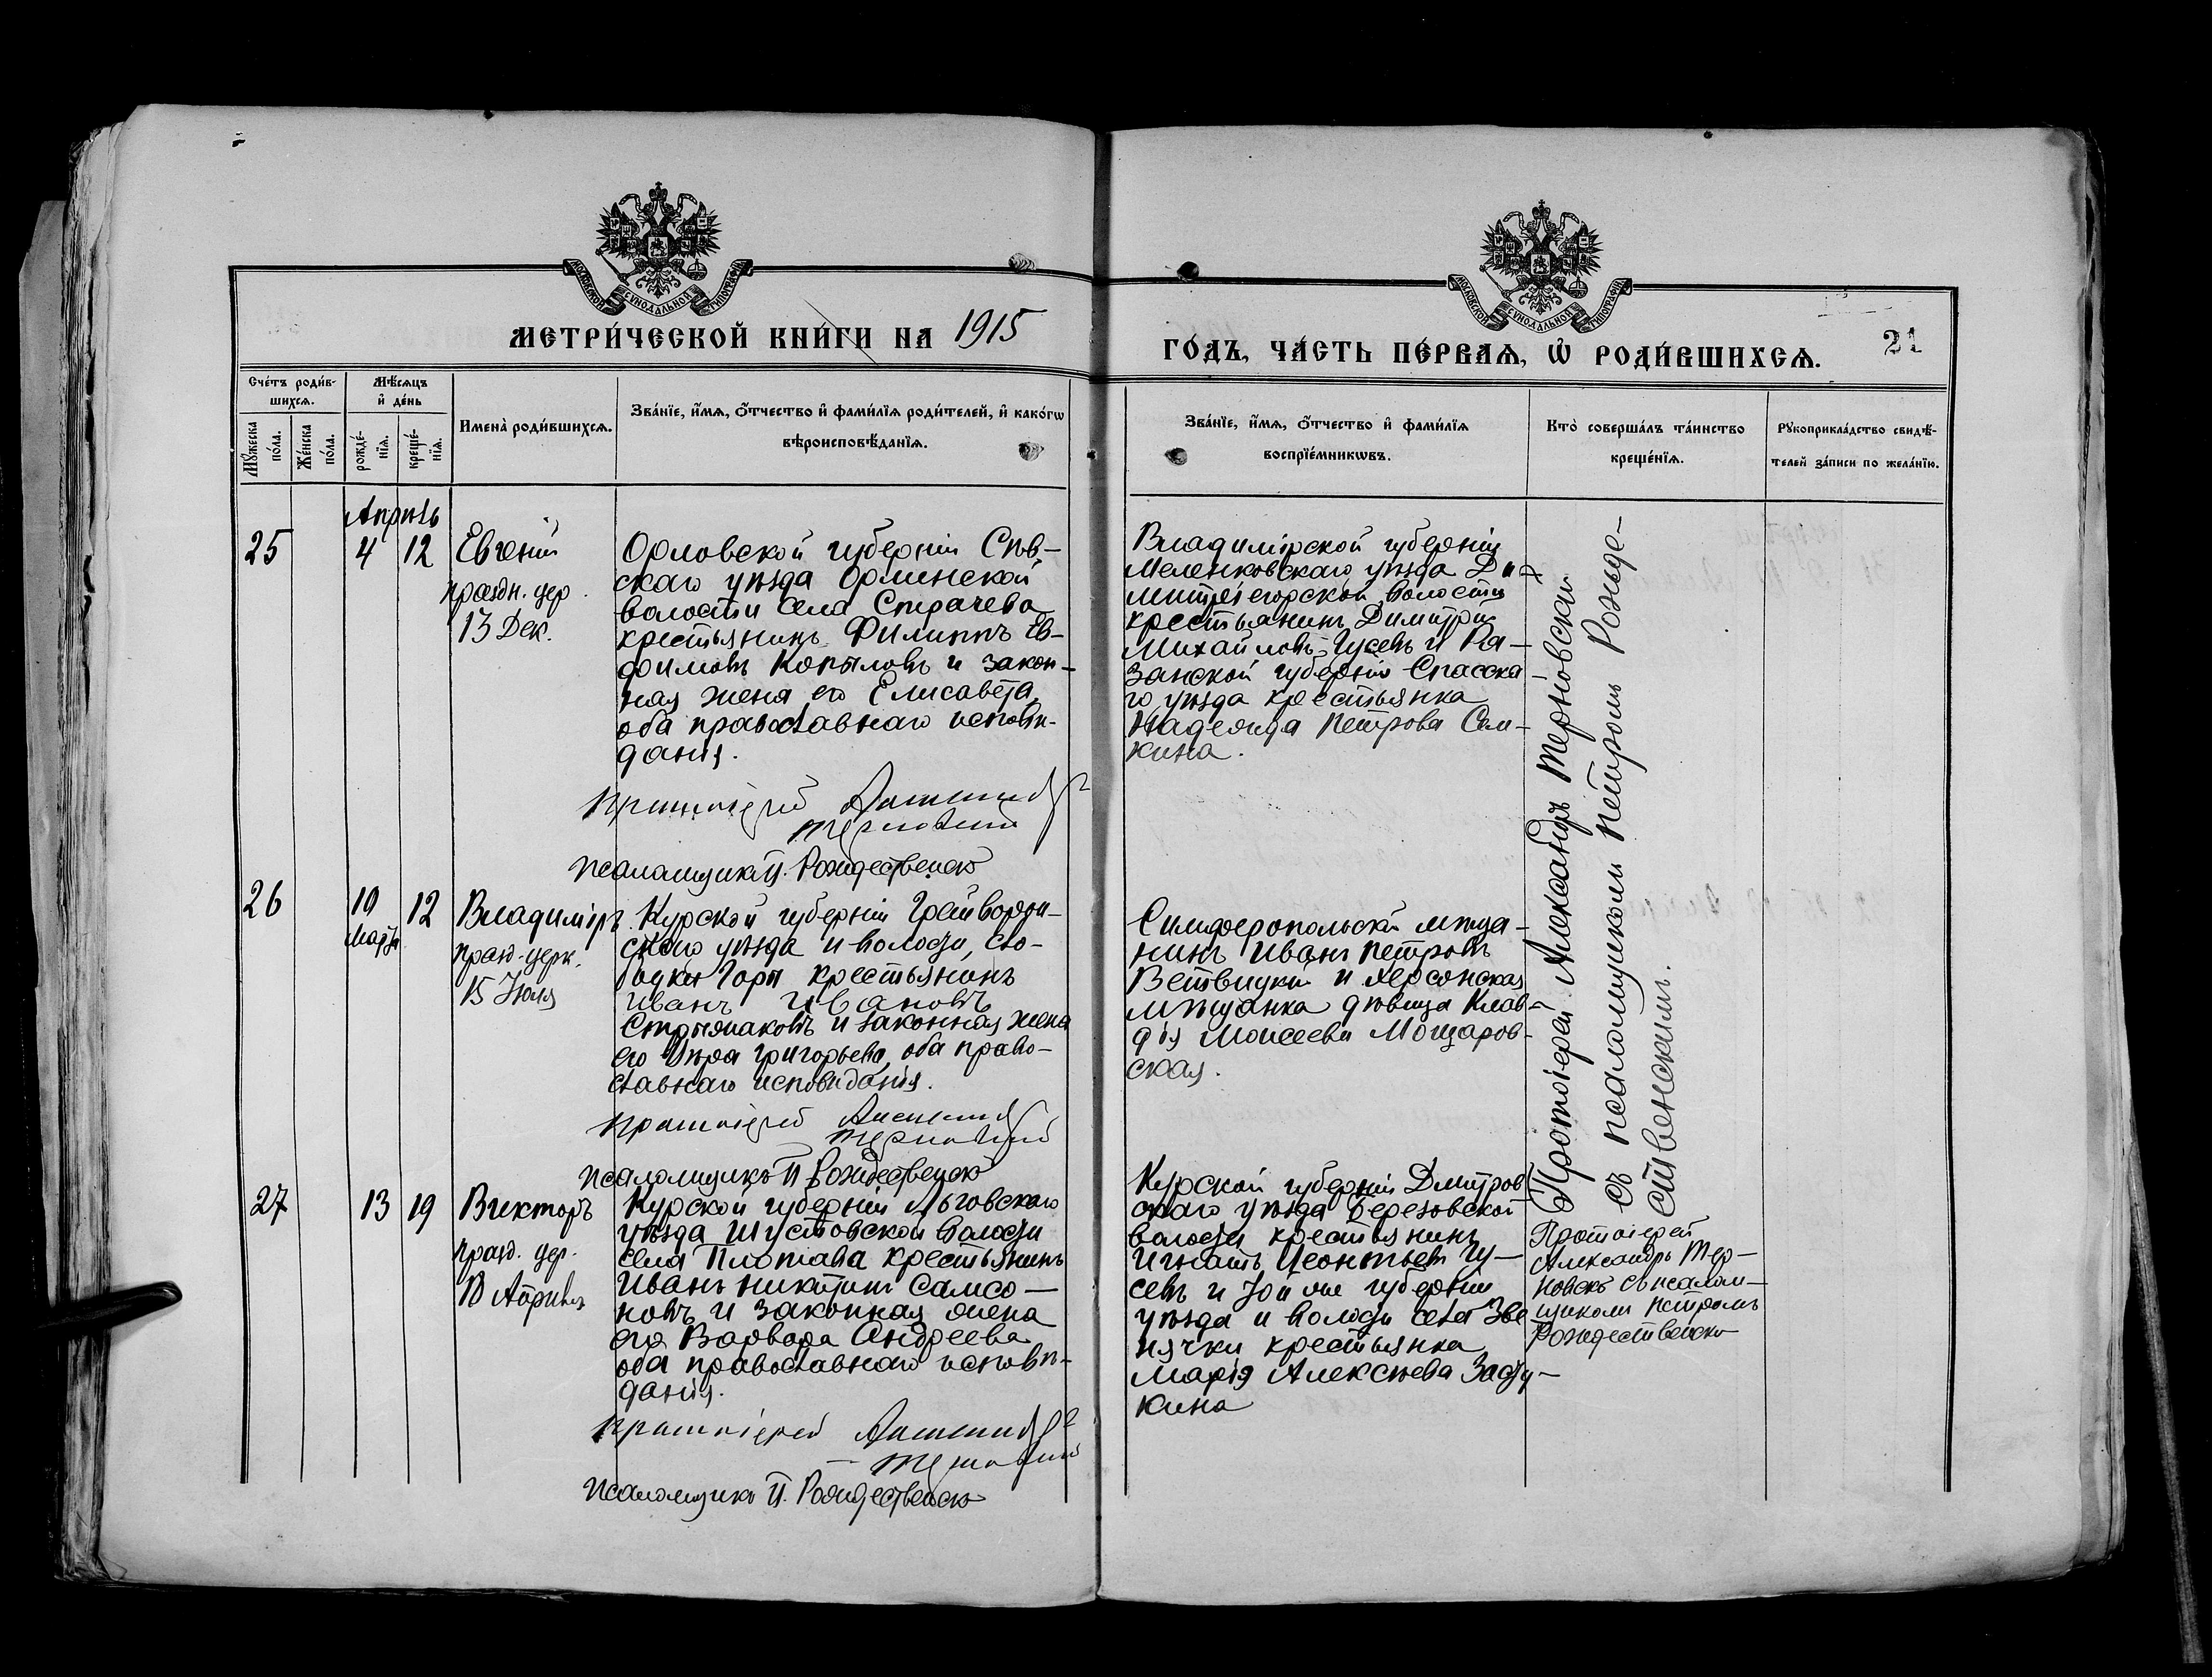 МЕТРИ́ЧЕСКОЙ КНИ́ГИ НА 1915
ГО́ДЪ, ЧА́СТЬ ПЕ́РВАѦ, Ѡ҆ РОДИ́ВШИХСѦ.
21
МОСКОВСКОЙ СѴНОДАЛЬНОЙ ТИПОГРАФІИ
МОСКОВСКОЙ СѴНОДАЛЬНОЙ ТИПОГРАФІИ
Сче́тъ роди́в-
шихсѧ.
Мꙋ́жеска по́ла.
Же́нска по́ла.
Мѣ́сѧцъ
и҆ де́нь
рожде́-
нїѧ.
креще́-
нїѧ.
И҆мена̀ роди́вшихсѧ.
Зва́нїе, и҆́мѧ, ѻ҆́тчество и҆ фами́лїѧ роди́телей, и҆ како́гѡ
вѣроисповѣ́данїѧ.
Зва́нїе, и҆́мѧ, ѻ҆́тчество и҆ фами́лїѧ
воспрїе́мникѡвъ.
Кто̀ соверша́лъ та́инство
креще́нїѧ.
Рꙋкоприкла́дство свидѣ́-
телей за́писи по жела́нїю.
Апрѣль
25
4
12
Евгеній
праздн. цер.
13 Дек.
Орловской губерніи Сѣв-
скаго уѣзда
волости села Страчева
крестьянинъ Филиппъ Ев-
фимовъ Копыловъ и закон-
ная жена его Елисавета,
оба православнаго исповѣ-
данія.
Протоіерей Александръ
Терновскій
Псаломщикъ П. Рождественск
Владимірской губерніи
Меленковскаго уѣзда Ди-
митріегорской волости
крестьянинъ Димитрій
Михайловъ Гусевъ и Ря-
занской губерніи Спасска-
го уѣзда крестьянка
Надежда Петрова Сем-
кина.
Протоіерей Александръ Терновскій
съ псаломщикомъ Петромъ Рожде-
ственскимъ.
26
19
Марта
12
Владиміръ
празд. церк.
15 Іюля
Курской губерніи Грайворон-
скаго уѣзда и волости, сло-
бодки Горы крестьянинъ
Иванъ Ивановъ
и законная жена
его Вѣра Григорьева, оба право-
славнаго исповѣданія.
Протоіерей Александръ
Терновскій
Псаломщикъ П. Рождественск
Симферопольскій мѣща-
нинъ Иванъ Петровъ
Ветвицкій и Херсонская
мѣщанка дѣвица Клав-
дія Моисеева Мощаров-
ская.
27
13
19
Викторъ
празд. цер.
18 Апрѣля
Курской губерніи Льговскаго
уѣзда Шустовской волости
села Плотава крестьянинъ
Иванъ Никитинъ Самсо-
новъ и законная жена
его Варвара Андреева
оба православнаго исповѣ-
данія.
Протоіерей Александръ
Терновскій
Псаломщикъ П. Рождественск
Курской губерніи Дмитров-
скаго уѣзда Березовской
волости крестьянинъ
Игнатъ Леонтьевъ Гу-
севъ и той же губерніи
уѣзда и волости села Зве
нячки крестьянка
Марія Алексѣева
кина
Протоіерей
Александръ Тер-
новскъ съ псалом-
щикомъ Петромъ
Рождественск